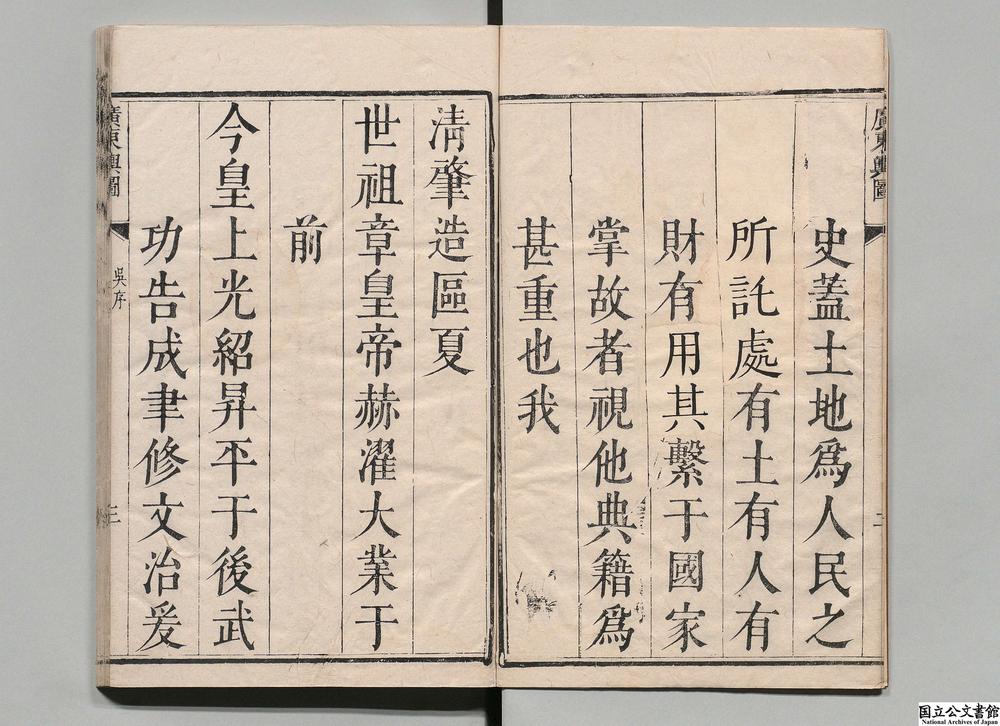 廣東輿圖
二
史蓋土地爲人民之
所託處有土有人有
財有用其繫于國家
掌故者視他典籍爲
甚重也我
清肇造區夏
世祖章皇帝赫濯大業于
前
今皇上光紹昇平于後武
功告成聿修文治爰
廣東輿圖
吳序
三
国立公文書館
National Archives of Japan